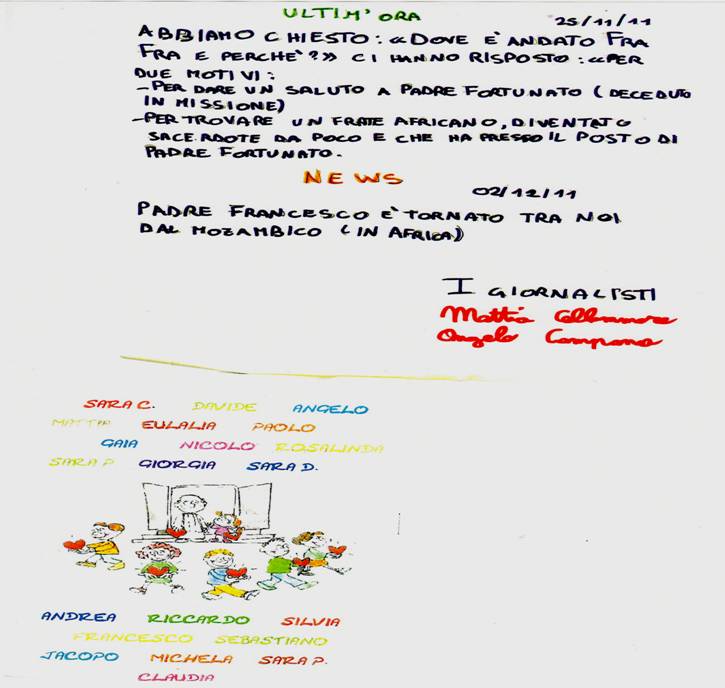 ULTIM' ORA 25/11/11
ABBIAMO CHIESTO: «DOVE È ANDATO FRA
FRA E PERCHÈ?» CI HANNO RISPOSTO: «PER
DUE MOTIVI:
-PER DARE UN SALUTO A PADRE FORTUNATO (DECEDUTO
IN MISSIONE)
-PER TROVARE UN FRATE AFRICANO, DIVENTATO
SACERDOTE DA POCO E CHE HA PRESSO IL POSTO DI
PADRE FORTUNATO.
NEWS
02/12/11
PADRE FRANCESCO È TORNATO TRA NOI
DAL MOZAMBICO (IN AFRICA)
I GIORNALISTI
Mattia
Angelo Campana
SARA C. DAVIDE ANGELO
MATTIA EULALIA PAOLO
GAIA NICOLO ROSALINDA
SARA P GIORGIA SARA D.
ANDREA RICCARDO SILVIA
FRANCESCO SEBASTIANO
JACOPO MICHELA SARA P.
CLAUDIA